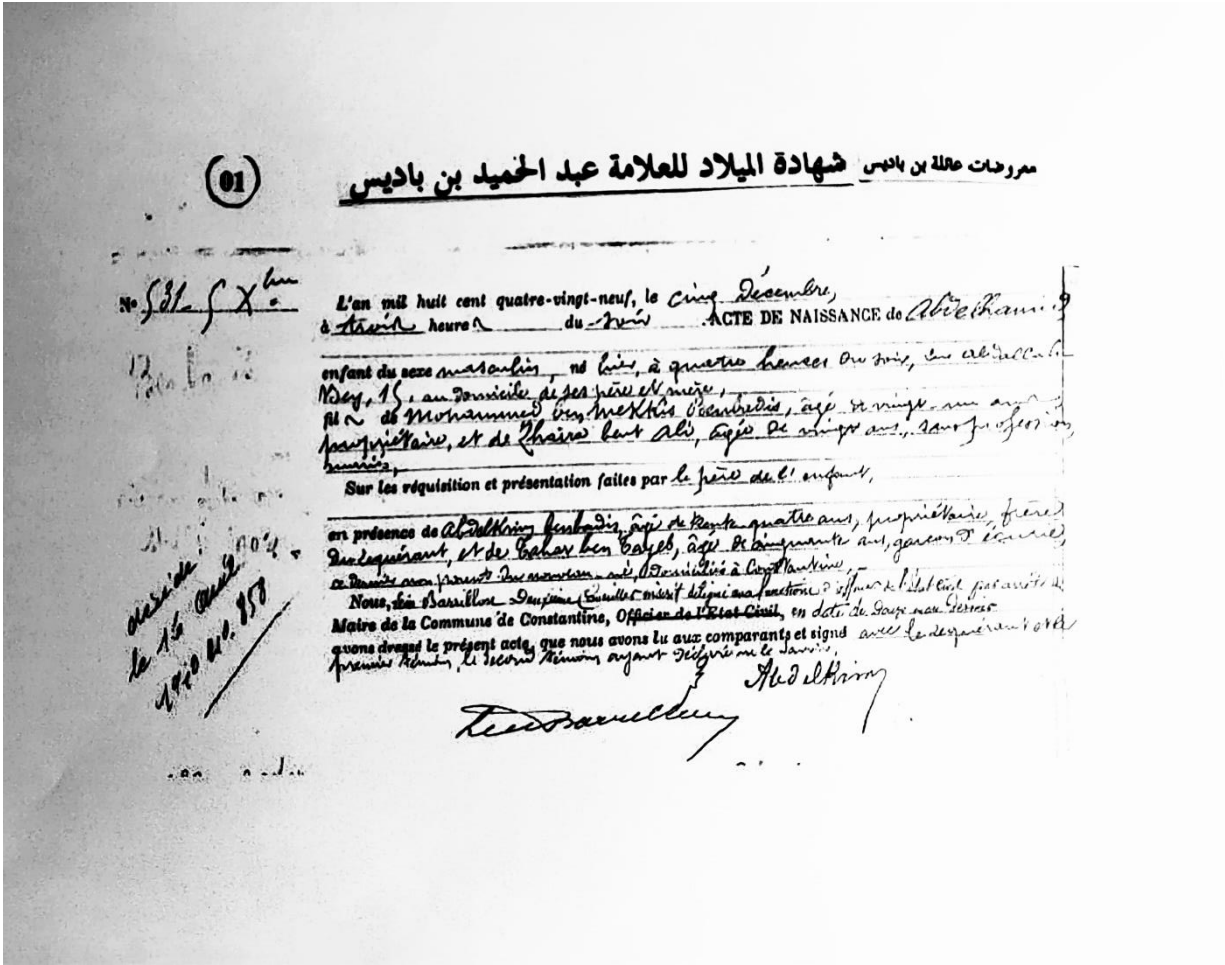 معروضات عائلة بن باديس شهادة الميلاد للعلامة عبد الحميد بن باديس
(01)
No 531 - 5 Xbre
L'an mil huit cent quatre-vingt-neuf, le cinq Décembre,
à trois heures du soir ACTE DE NAISSANCE de Abdelhamid
enfant du sexe masculin, né hier, à quatre heures du soir, rue
Bey, 15, au domicile de ses père et mère,
fils de Mohammed ben Mekki benbadis, âgé de vingt-un ans
propriétaire, et de Zhaira bent Ali, âgée de vingt ans, sans profession,
mariés,
Sur les réquisition et présentation faites par le père de l'enfant,
en présence de Abdelkrim benbadis, âgé de trente-quatre ans, propriétaire, frère
du requérant, et de Tahar ben Tayeb, âgé de cinquante ans, garçon d'écurie,
ce dernier non parent du nouveau-né, domiciliés à Constantine,
Nous, Barrillon Deuxième Conseiller délégué aux fonctions d'officier de l'état civil par arrêté du
Maire de la Commune de Constantine, Officier de l'Etat Civil, en date de douze mars dernier
avons dressé le présent acte, que nous avons lu aux comparants et signé avec le requérant et le
premier témoin, le second témoin ayant déclaré ne le savoir.
Abdelkrim
décédé
le 16
1940 No. 858